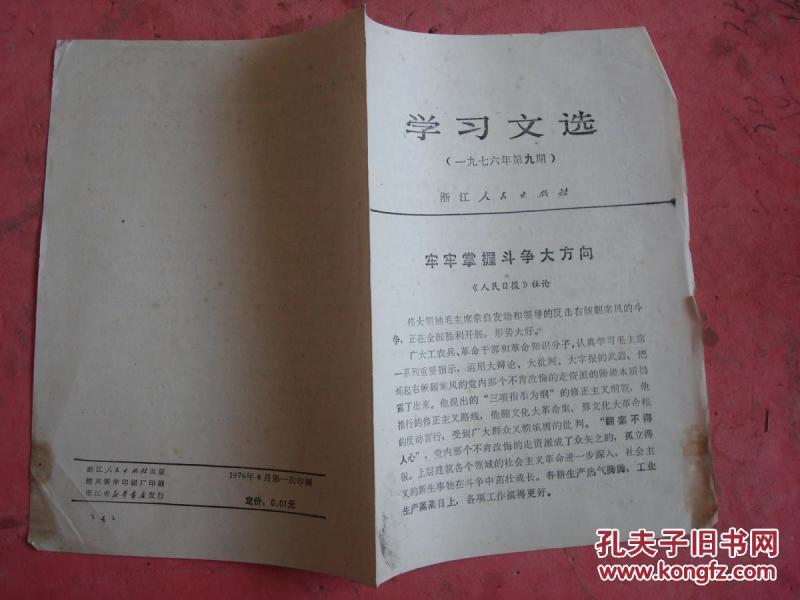 学习文选
（一九七六年第九期）
浙江人民出版社
牢牢掌握斗争大方向
《人民日报》社论
伟大领袖毛主席亲自发动和领导的反击右倾翻案风的斗
争，正在全国胜利开展，形势大好。
广大工农兵、革命干部和革命知识分子，认真学习毛主席
一系列重要指示，运用大辩论、大批判、大字报的武器，把
掀起右倾翻案风的党内那个不肯改悔的走资派的阶级本质揭
露了出来。他提出的“三项指示为纲”的修正主义纲领，他
推行的修正主义路线，他翻文化大革命案、算文化大革命帐
的反动言行，受到广大群众义愤填膺的批判。“翻案不得
人心”，党内那个不肯改悔的走资派成了众矢之的，孤立得
很。上层建筑各个领域的社会主义革命进一步深入，社会主
义的新生事物在斗争中茁壮成长。春耕生产热气腾腾，工业
生产蒸蒸日上，各项工作搞得更好。
浙江人民出版社出版
绍兴新华印刷厂印刷
浙江省新华书店发行
1976年4月第一次印刷
定价：0.01元
孔夫子旧书网
KONGFZ.COM